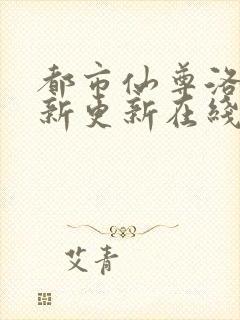 都市仙尊洛
新更新在线
艾青